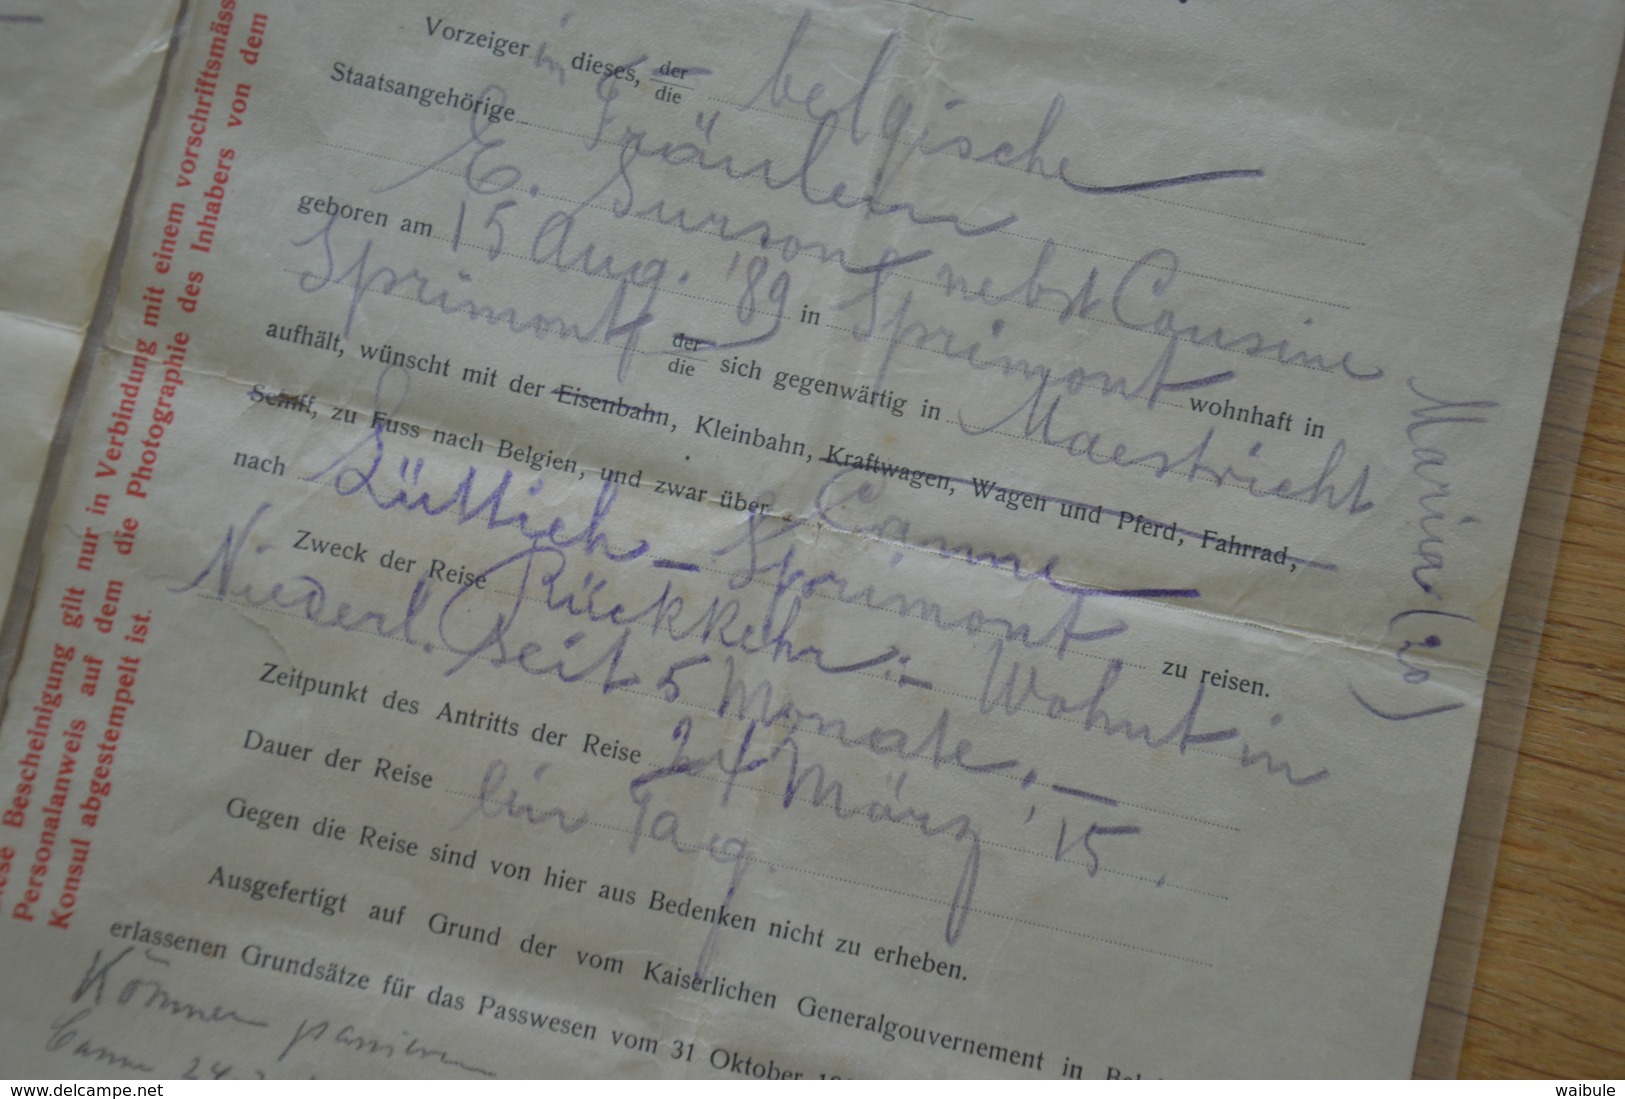 Vorzeigerin dieses, der/die belgische
Staatsangehörige Fräulein
E. Sursong nebst Cousine Maria (20)
geboren am 15 Aug. '89 in Sprimont wohnhaft in
Sprimont der/die sich gegenwärtig in Maestricht
aufhält, wünscht mit der Eisenbahn, Kleinbahn, Kraftwagen, Wagen und Pferd, Fahrrad,
Schiff, zu Fuss nach Belgien, und zwar über Canne
nach Lüttich - Sprimont zu reisen.
Zweck der Reise Rückkehr :- Wohnt in
Niederl. seit 5 Monate. -
Zeitpunkt des Antritts der Reise 24 März '15.
Dauer der Reise ein Tag.
Gegen die Reise sind von hier aus Bedenken nicht zu erheben.
Ausgefertigt auf Grund der vom Kaiserlichen Generalgouvernement in
erlassenen Grundsätze für das Passwesen vom 31 Oktober
Können passieren
Canne 24
Bescheinigung gilt nur in Verbindung mit einem
Personalanweis auf dem die Photographie des Inhabers von dem
Konsul abgestempelt ist.
delcampe.net
waibule